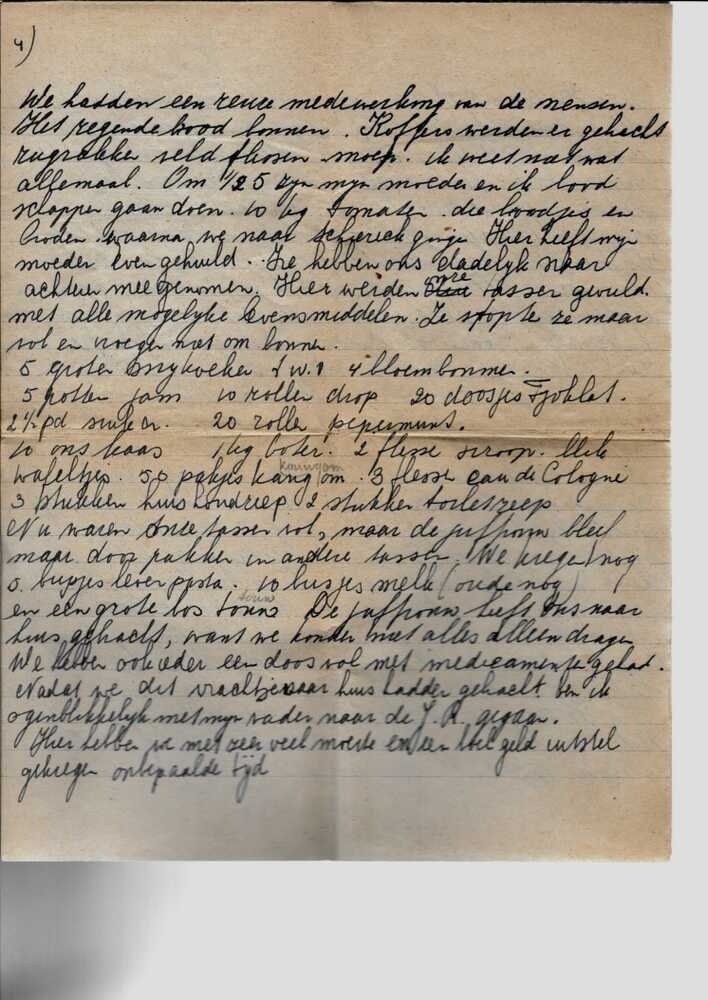 4)
We hadden een reuze medewerking van de mensen.
Het regende brood bonnen. Koffers werden er gehacht
rugzakken veld flessen moep. ik weet niet wat
allemaal. Om 1/2 5 zijn mijn moeder en ik bood
schapper gaan doen. 10 kg tomaten. die broodjes en
broden. waarna we naar gingen Hier heeft mijn
moeder even gehuild. Ze hebben ons dadelyk naar
achteren meegenomen. Hier werden onze tassen gevuld.
met alle mogelijke levensmiddelen. Ze stopte ze maar
vol en vroegen niet om bonnen.
5 groten ontbykoeken d.w.1 4 bloembonnen.
5 potten jam 10 rollen drop 20 doosjes Tjoklat.
2 1/2 pd suiker. 20 rollen pepermunt.
10 ons kaas 1 kg boter. 2 flesse siroop.
wafeltjes. 50 pakjes kaug om. 3 flesse eau de Cologne
3 stukken huishoudzeep 2 stukken toiletzeep
Nu waren onze tassen vol, maar de juffrouw bleef
maar door pakken in andere tassen. We kregen nog
5. busjes lever pasta. 10 busjes melk (oude nog)
en een grote bos touw De juffrouw heeft ons naar
huis gebracht, want we konden niet alles alleen dragen
We hebben ook ieder een doos vol met medicamenten gehad.
Nadat we dit vrachtje naar huis hadden gebracht ben ik
ogenblikkelijk met mijn vader naar de J.R. gegaan.
Hier hebben we met zeer veel moeite en een boel geld uitstel
gekregen onbepaalde tijd